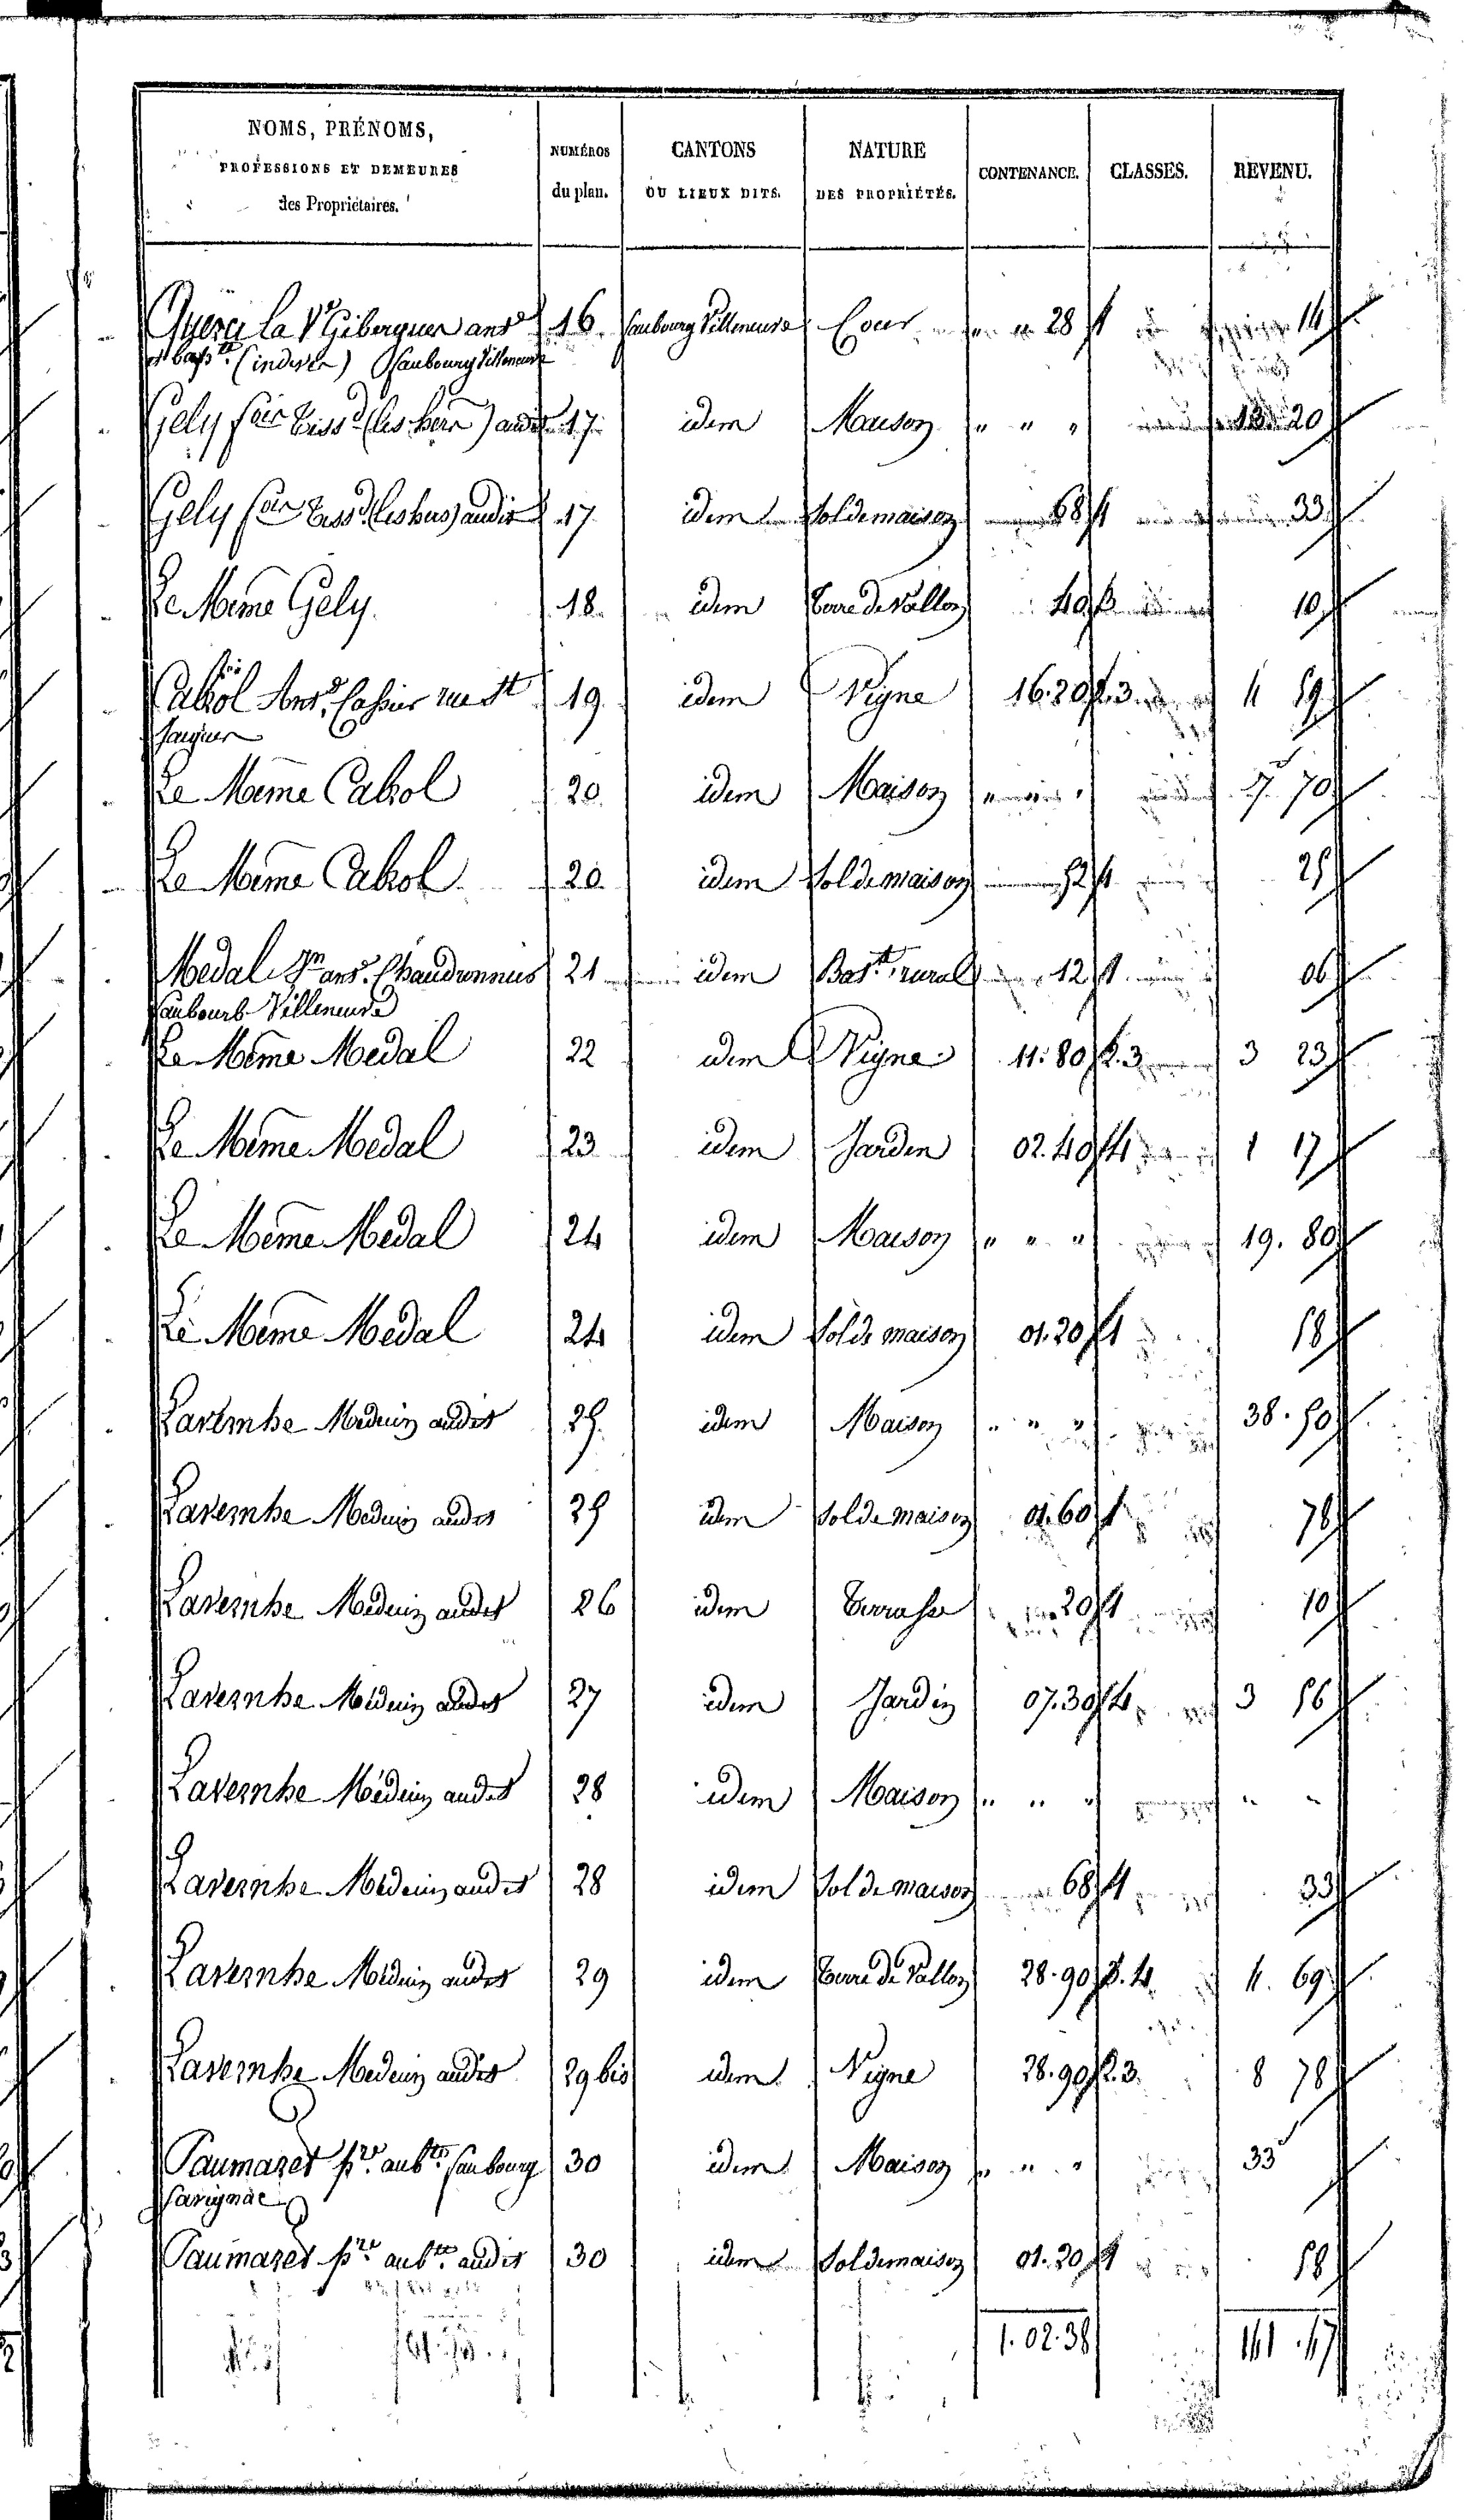 NOMS, PRÉNOMS,
PROFESSIONS ET DEMEURES
des Propriétaires.
NUMÉROS
du plan.
CANTONS
OU LIEUX DITS.
NATURE
DES PROPRIÉTÉS.
CONTENANCE.
CLASSES.
REVENU.
la Ve 16. faubourg Villeneuve Cour 28 1 14
faubourg Villeneuve
Gely 17 idem Maison " " " 13 20
Gely 17 idem Sol de maison 68 1 33
Le Meme Gely 18 idem Terre de Vallon 40 10
Cabrol 19 idem Vigne 16.20 2.3 4 59
Le Meme Cabrol 20 idem Maison 70
Le Meme Cabrol 20 idem Sol de maison 52 1 25
Medal 21 idem Bast. rural 12 1 06
faubourg Villeneuve
Le Meme Medal 22 idem Vigne 11.80 2.3 3 23
Le Meme Medal 23 idem Jardin 02.40 1 17
Le Meme Medal 24 idem Maison " " " 19.80
Le Meme Medal 24 idem Sol de maison 01.20 1 58
Lavernhe Medecin audit 25 idem Maison " " " 38.50
Lavernhe Medecin audit 25 idem Sol de maison 01.60 1 78
Lavernhe Medecin audit 26 idem Terrasse 20 1 10
Lavernhe Medecin audit 27 idem Jardin 07.30 3 56
Lavernhe Medecin audit 28 idem Maison " " " " "
Lavernhe Medecin audit 28 idem Sol de maison 68 1 33
Lavernhe Medecin audit 29 idem Terre de Vallon 28.90 4. 69
Lavernhe Medecin audit 29 bis idem Vigne 28.90 2.3 8 78
Paumaret aubte faubourg 30 idem Maison " " " 33
Savignac
Paumaret aubte audit 30 idem Sol de maison 01.20 1 58
1.02.38 141.47